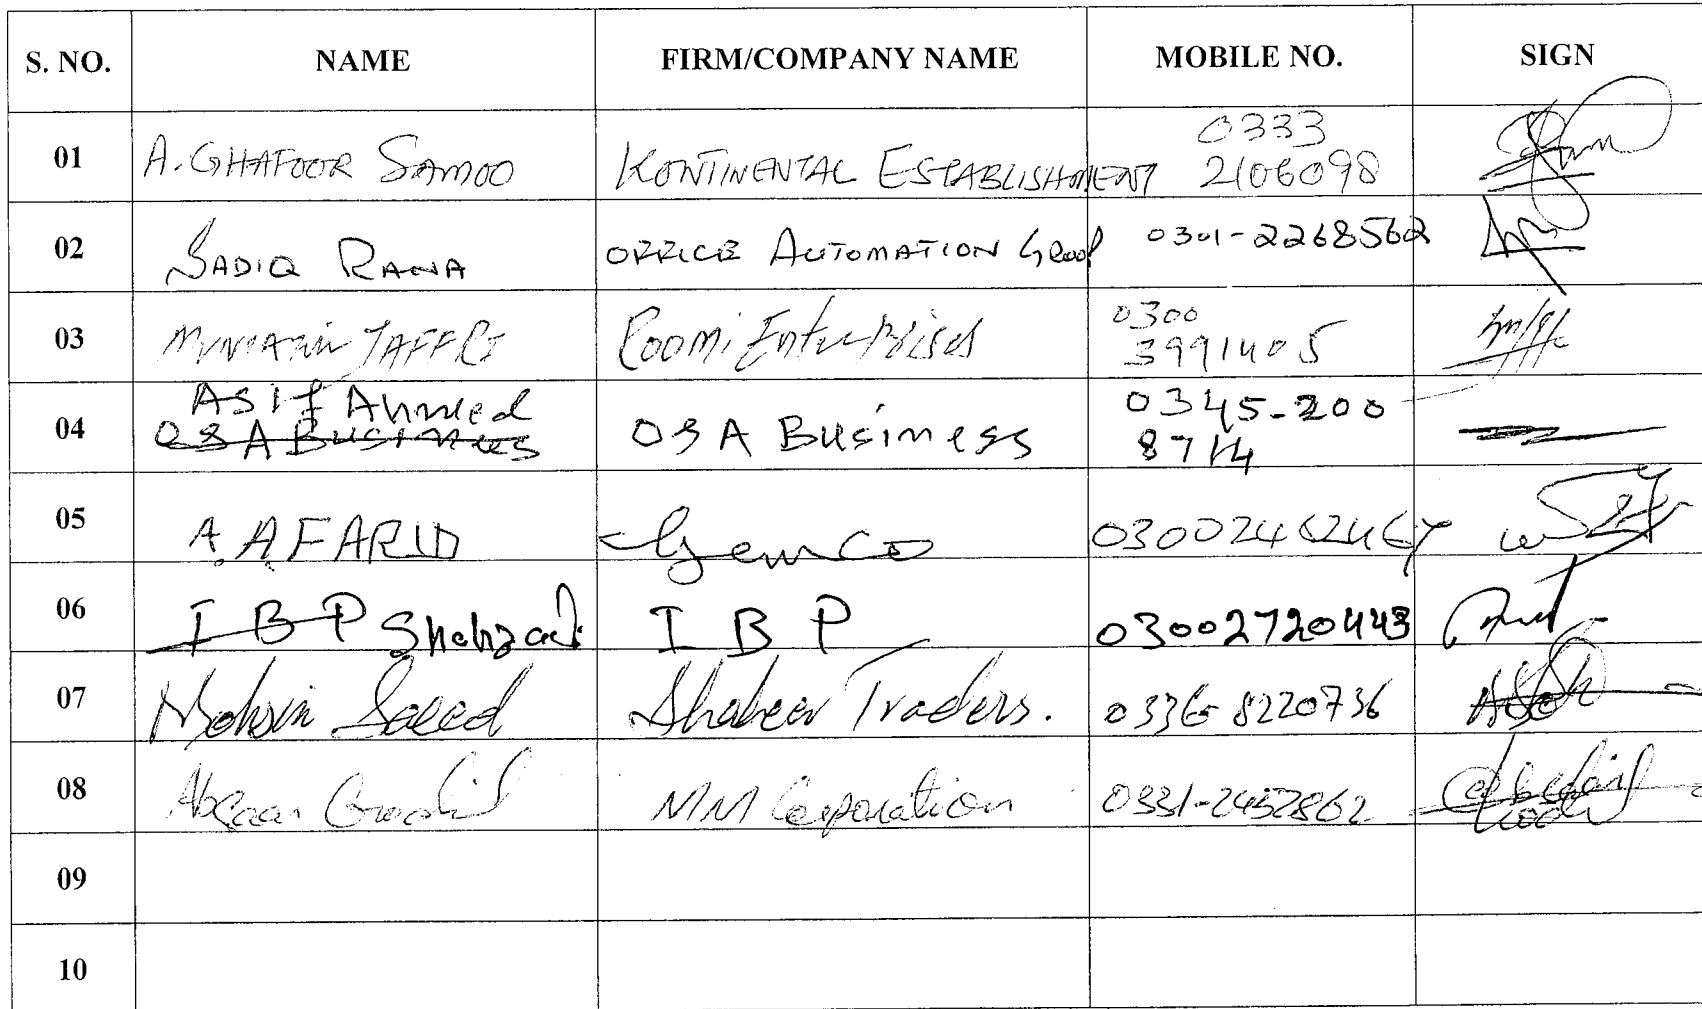 S. NO. NAME FIRM/COMPANY NAME MOBILE NO. SIGN
01 A. GHAFOOR SAMOO KONTINENTAL ESTABLISHMENT 0333
2106098
02 SADIQ RANA OFFICE AUTOMATION Group 0301-2268562
03 JAFFRI Roomi Enterprises 0300
3991405
04 Asif Ahmed OSA Business 0345-200
OSA Business 8714
05 A. A. FARID Gemco
06 IBP Shehzad IBP 03002720443
07 Mohsin Saeed Shabeer Traders. 0336-8220736
08 MM Corporation 0331-2452862
09
10